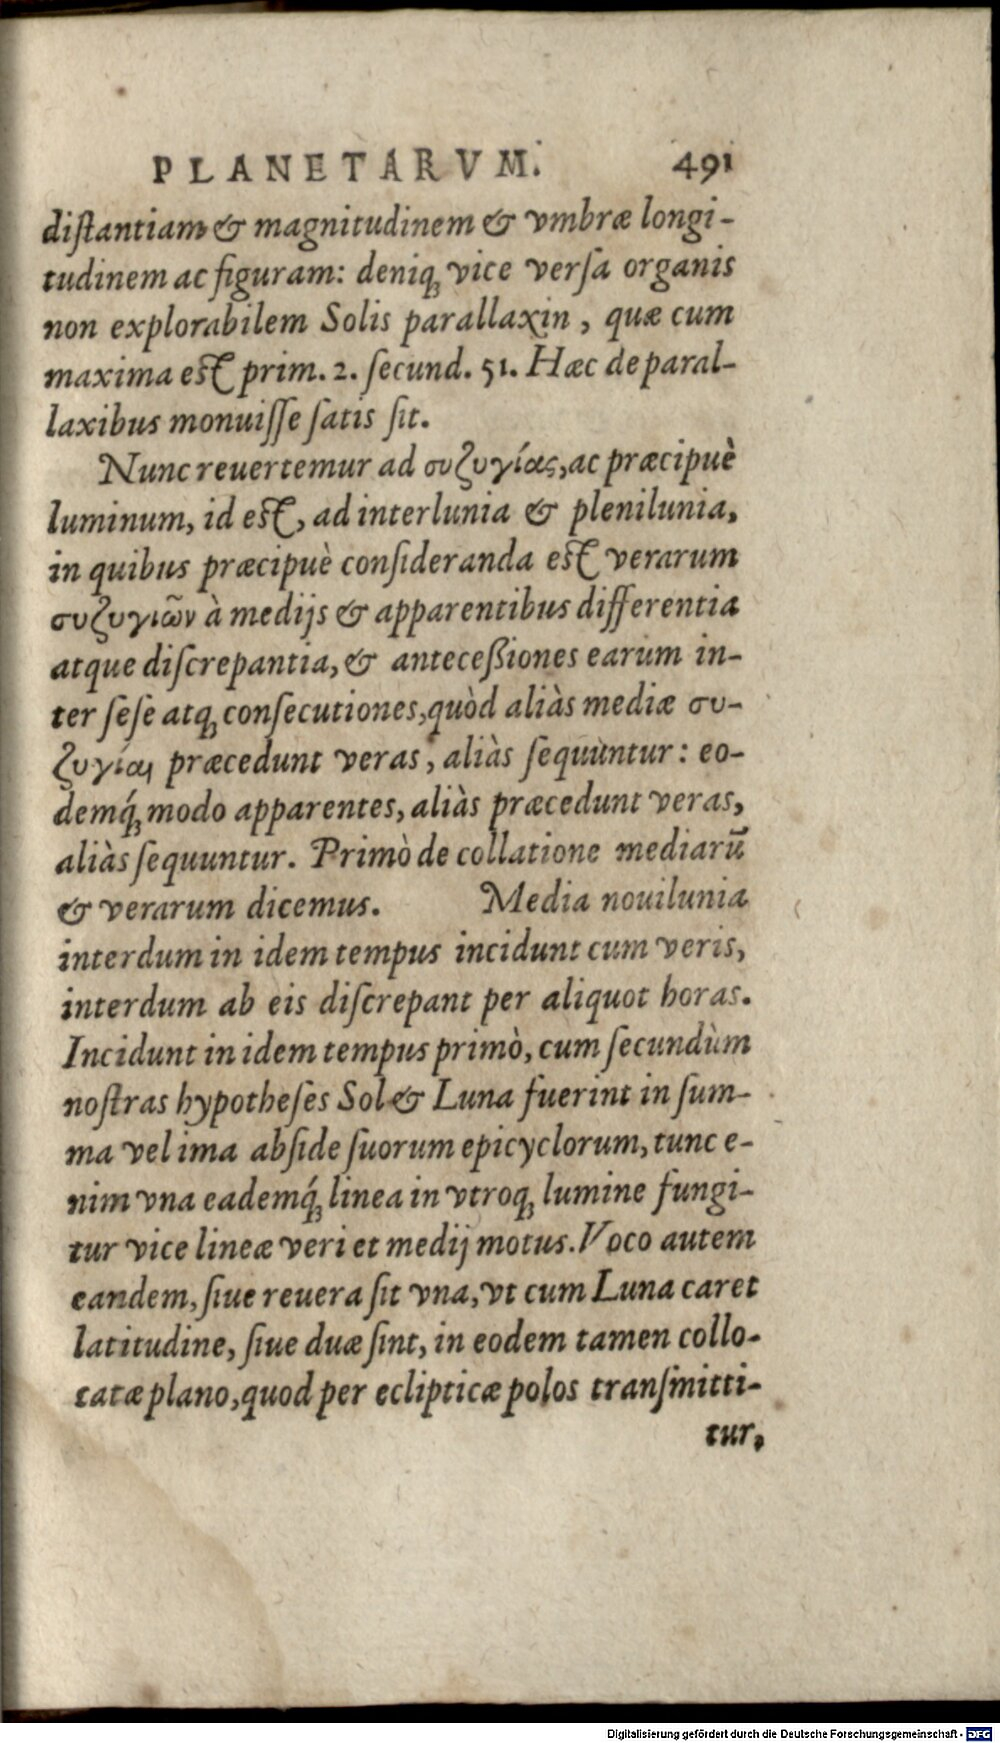 PLANETARVM. 491
diſtantiam & magnitudinem & vmbræ longi-
tudinem ac figuram: deniq́ꝫ vice verſa organis
non explorabilem Solis parallaxin, quæ cum
maxima eſt prim. 2. ſecund. 51. Hæc de paral-
laxibus monuiſſe ſatis ſit.
Nunc reuertemur ad συζυγίας, ac præcipuè
luminum, id eſt, ad interlunia & plenilunia,
in quibus præcipuè conſideranda eſt verarum
συζυγιῶν à medijs & apparentibus differentia
atque diſcrepantia, & anteceßiones earum in-
ter ſeſe atqꝫ conſecutiones, quòd aliàs mediæ συ-
ζυγίαι præcedunt veras, aliàs ſequùntur: eo-
demq́ꝫ modo apparentes, aliàs præcedunt veras,
aliàs ſequuntur. Primò de collatione mediarū
& verarum dicemus. Media nouilunia
interdum in idem tempus incidunt cum veris,
interdum ab eis diſcrepant per aliquot horas.
Incidunt in idem tempus primò, cum ſecundùm
noſtras hypotheſes Sol & Luna fuerint in ſum-
ma vel ima abſide ſuorum epicyclorum, tunc e-
nim vna eademq́ꝫ linea in vtroqꝫ lumine fungi-
tur vice lineæ veri et medij motus. Voco autem
eandem, ſiue reuera ſit vna, vt cum Luna caret
latitudine, ſiue duæ ſint, in eodem tamen collo-
catæ plano, quod per eclipticæ polos tranſmitti-
tur,
Digitalisierung gefördert durch die Deutsche Forschungsgemeinschaft - DFG